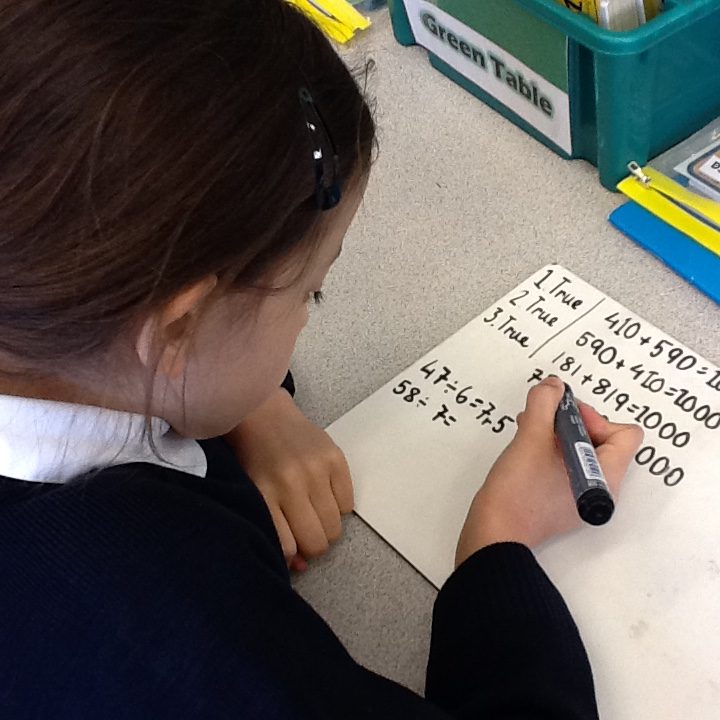 Green Table
1. True
2. True
3. True
410+590=
590+410=1000
181+819=1000
000
47÷6=7r5
58÷7=